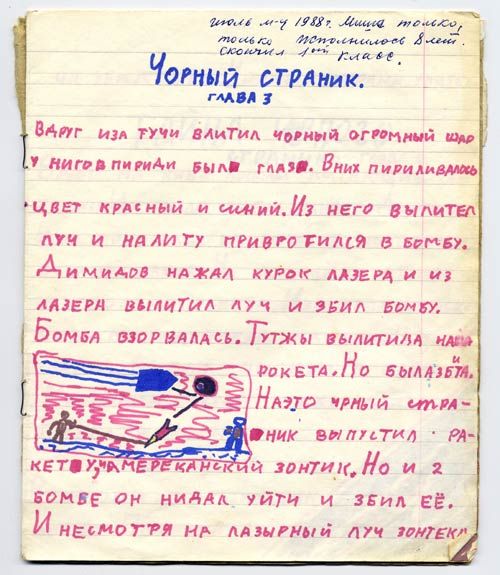 июль м-ц 1988г. Миша только,
только исполнилось 8 лет.
скончил 1ый класс.
ЧОРНЫЙ СТРАНИК.
ГЛАВА 3
ВДРУГ ИЗА ТУЧИ ВЛИТИЛ ЧОРНЫЙ ОГРОМНЫЙ ШАР
У НИГО ВПИРИДИ БЫЛ ГЛАЗ. В НИХ ПИРИЛИВАЛОСЬ
ЦВЕТ КРАСНЫЙ И СИНИЙ. ИЗ НЕГО ВЫЛИТЕЛ
ЛУЧ И НАЛИТУ ПРИВРОТИЛСЯ В БОМБУ.
ДИМИДОВ НАЖАЛ КУРОК ЛАЗЕРА И ИЗ
ЛАЗЕРА ВЫЛИТИЛ ЛУЧ И ЗБИЛ БОМБУ.
БОМБА ВЗОРВАЛАСЬ. ТУТЖЫ ВЫЛИТИЛА НАША
РОКЕТА. НО БЫЛА ЗБИТА.
НАЭТО ЧРНЫЙ СТРА-
НИК ВЫПУСТИЛ РА-
КЕТУ, АМЕРЕКАНСКИЙ ЗОНТИК. НО И 2
БОМБЕ ОН НИДАЛ УЙТИ И ЗБИЛ ЕЁ.
И НЕСМОТРЯ НА ЛАЗЫРНЫЙ ЛУЧ ЗОНТЕКА